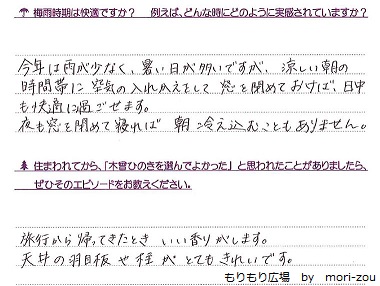 梅雨時期は快適ですか？ 例えば、どんな時にどのように実感されていますか？
今年は雨が少なく、暑い日が多いですが、涼しい朝の
時間帯に空気の入れかえをして窓を閉めておけば、日中
も快適に過ごせます。
夜も窓を閉めて寝れば 朝冷え込むこともありません。
住まわれてから、「木曾ひのきを選んでよかった」と思われたことがありましたら、
ぜひそのエピソードをお教えください。
旅行から帰ってきたとき いい香りがします。
天井の羽目板や柱がとてもきれいです。
もりもり広場 by mori-zou